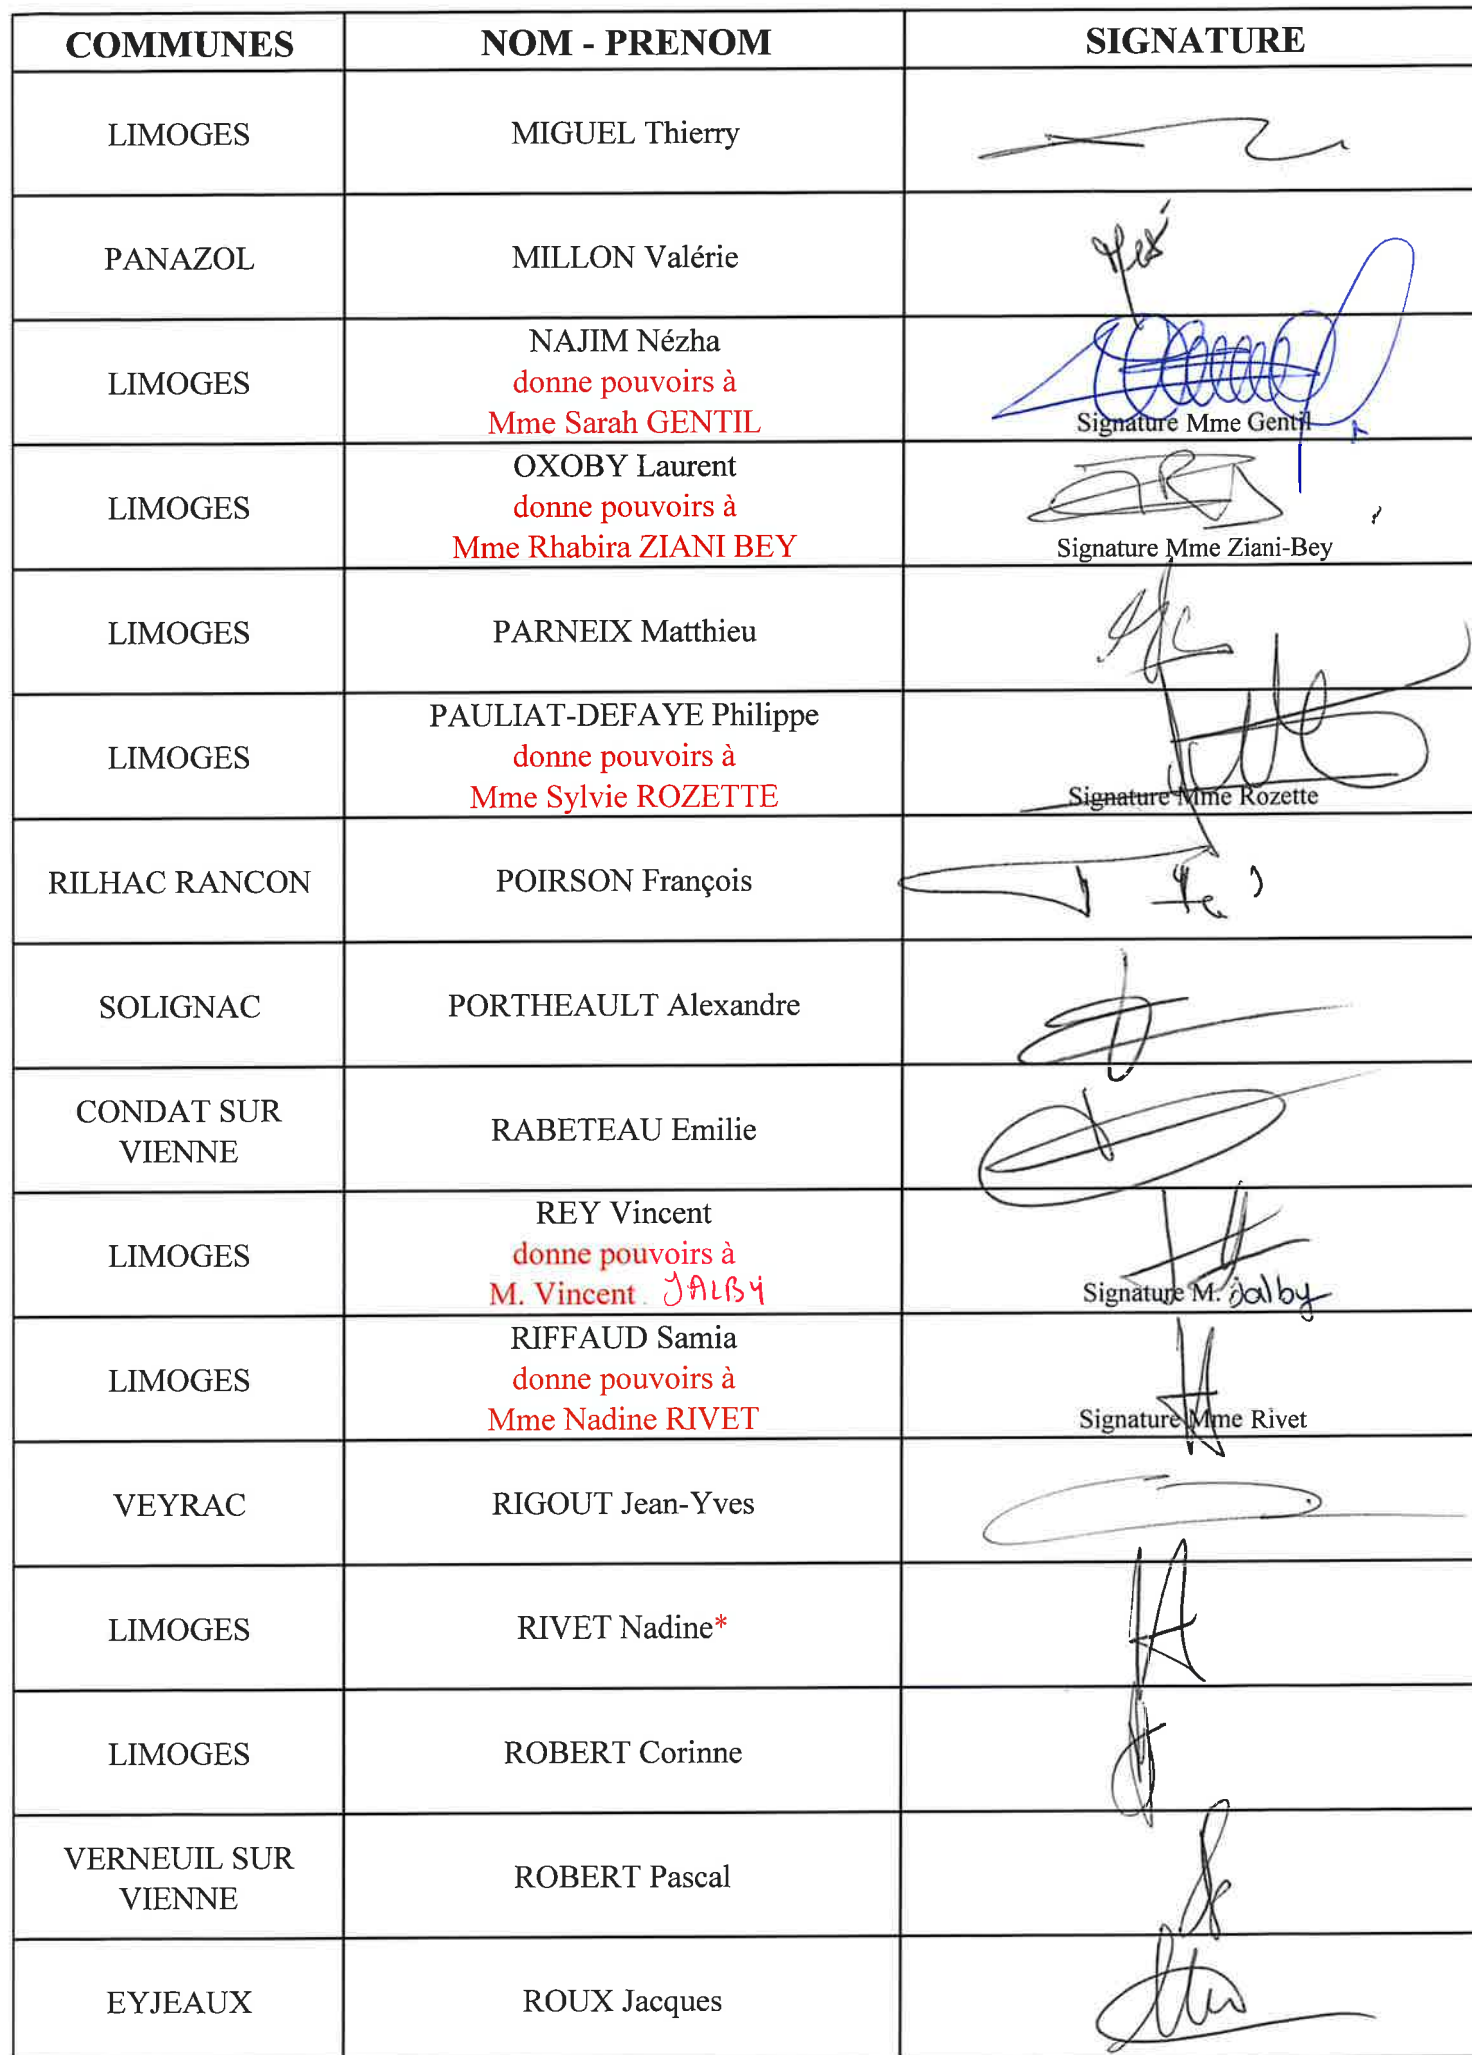 COMMUNES
NOM - PRENOM
SIGNATURE
LIMOGES
MIGUEL Thierry
PANAZOL
MILLON Valérie
LIMOGES
NAJIM Nézha
donne pouvoirs à
Mme Sarah GENTIL
Signature Mme Gentil
LIMOGES
OXOBY Laurent
donne pouvoirs à
Mme Rhabira ZIANI BEY
Signature Mme Ziani-Bey
LIMOGES
PARNEIX Matthieu
LIMOGES
PAULIAT-DEFAYE Philippe
donne pouvoirs à
Mme Sylvie ROZETTE
Signature Mme Rozette
RILHAC RANCON
POIRSON François
SOLIGNAC
PORTHEAULT Alexandre
CONDAT SUR
VIENNE
RABETEAU Emilie
LIMOGES
REY Vincent
donne pouvoirs à
M. Vincent JALBY
Signature M. Jalby
LIMOGES
RIFFAUD Samia
donne pouvoirs à
Mme Nadine RIVET
Signature Mme Rivet
VEYRAC
RIGOUT Jean-Yves
LIMOGES
RIVET Nadine*
LIMOGES
ROBERT Corinne
VERNEUIL SUR
VIENNE
ROBERT Pascal
EYJEAUX
ROUX Jacques